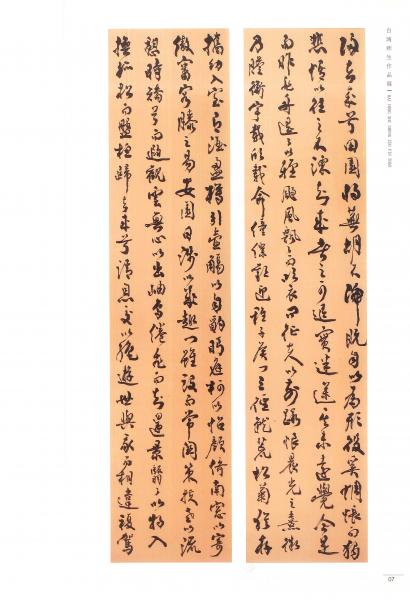 歸去來兮田園將蕪胡不歸既自以為形役奚惆悵而獨
悲悟以往之不諫知來者之可追實迷途其未遠覺今是
而昨非舟遙遙以輕颺風飄飄而吹衣問征夫以前路恨晨光之熹微
乃瞻衡宇載欣載奔僮僕歡迎稚子候門三徑就荒松菊猶存
攜幼入室有酒盈樽引壺觴以自酌眄庭柯以怡顏倚南窗以寄
傲審容膝之易安園日涉以成趣門雖設而常關策扶老以流
憩時矯首而遐觀雲無心以出岫鳥倦飛而知還景翳翳以將入
撫孤松而盤桓歸去來兮請息交以絕遊世與我而相違復駕
07